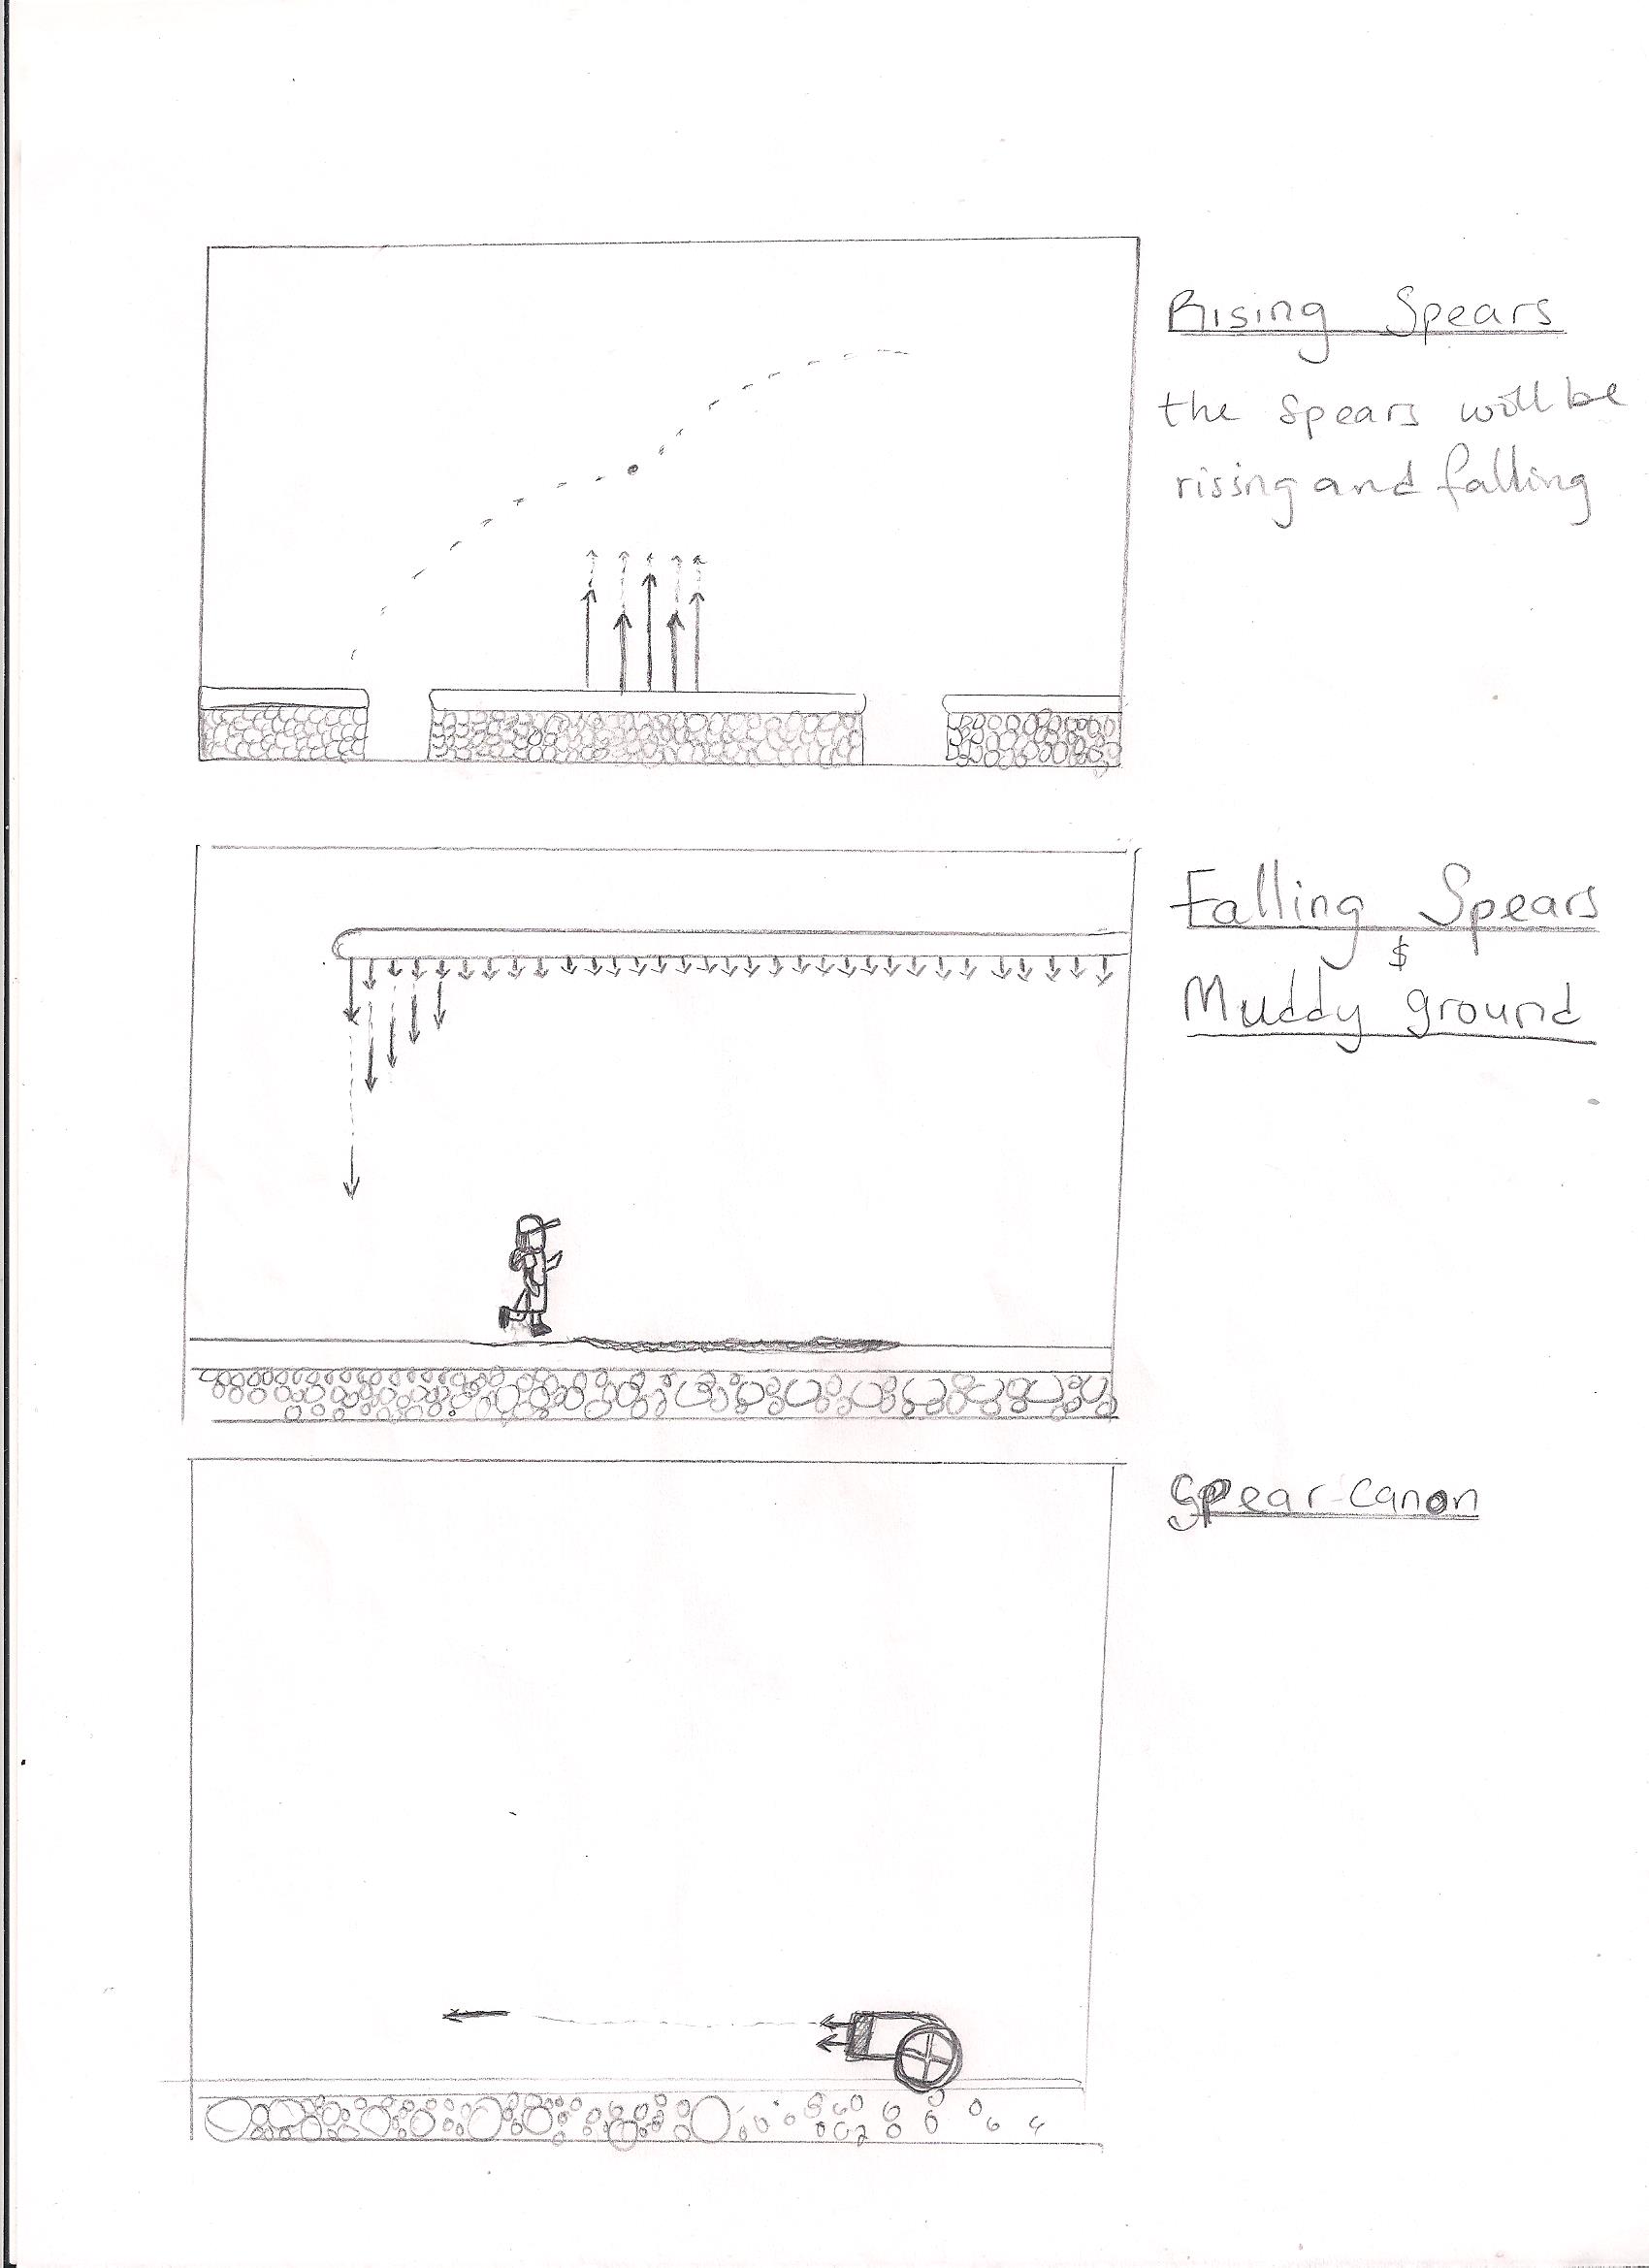 Rising Spears
the spears will be
rising and falling
Falling Spears
$
Muddy ground
Spear-Canon